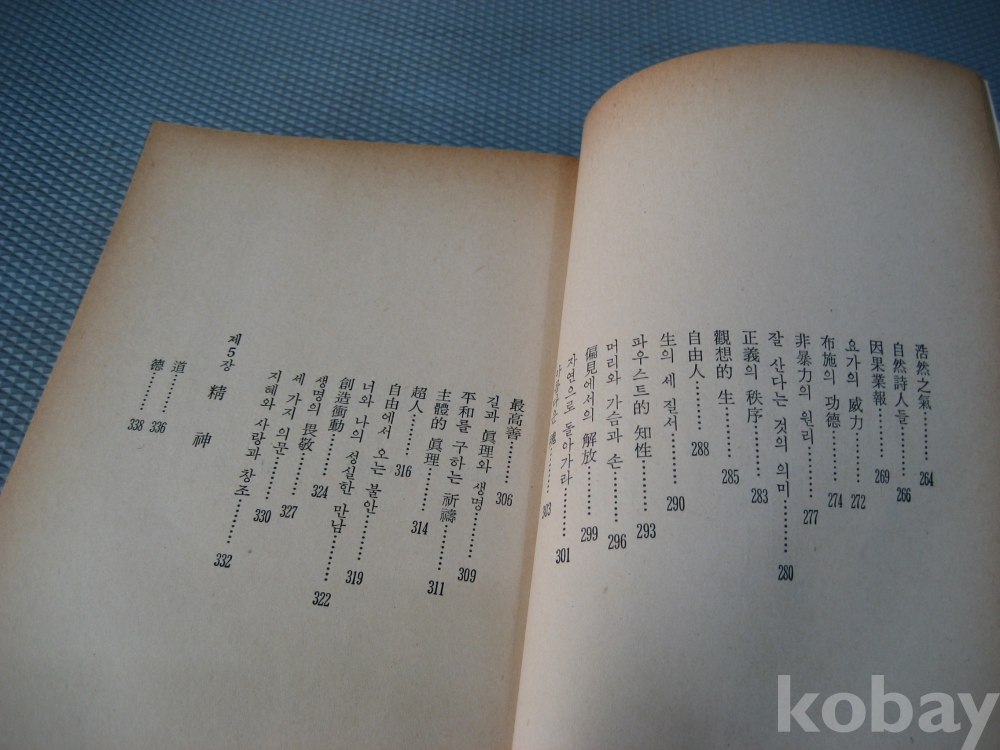 浩然之氣 264
自然詩人들 266
因果業報 269
요가의 威力 272
布施의 功德 274
非暴力의 원리 277
잘 산다는 것의 의미 280
正義의 秩序 283
觀想的 生 285
自由人 288
生의 세 질서 290
파우스트的 知性 293
머리와 가슴과 손 296
偏見에서의 解放 299
자연으로 돌아가라 301
303
最高善 306
길과 眞理와 생명 309
平和를 구하는 祈禱 311
主體的 眞理 314
超人 316
自由에서 오는 불안 319
너와 나의 성실한 만남 322
創造衝動 324
생명의 畏敬 327
세 가지 의문 330
지혜와 사랑과 창조 332
제5장 精神
道 336
德 338
kobay